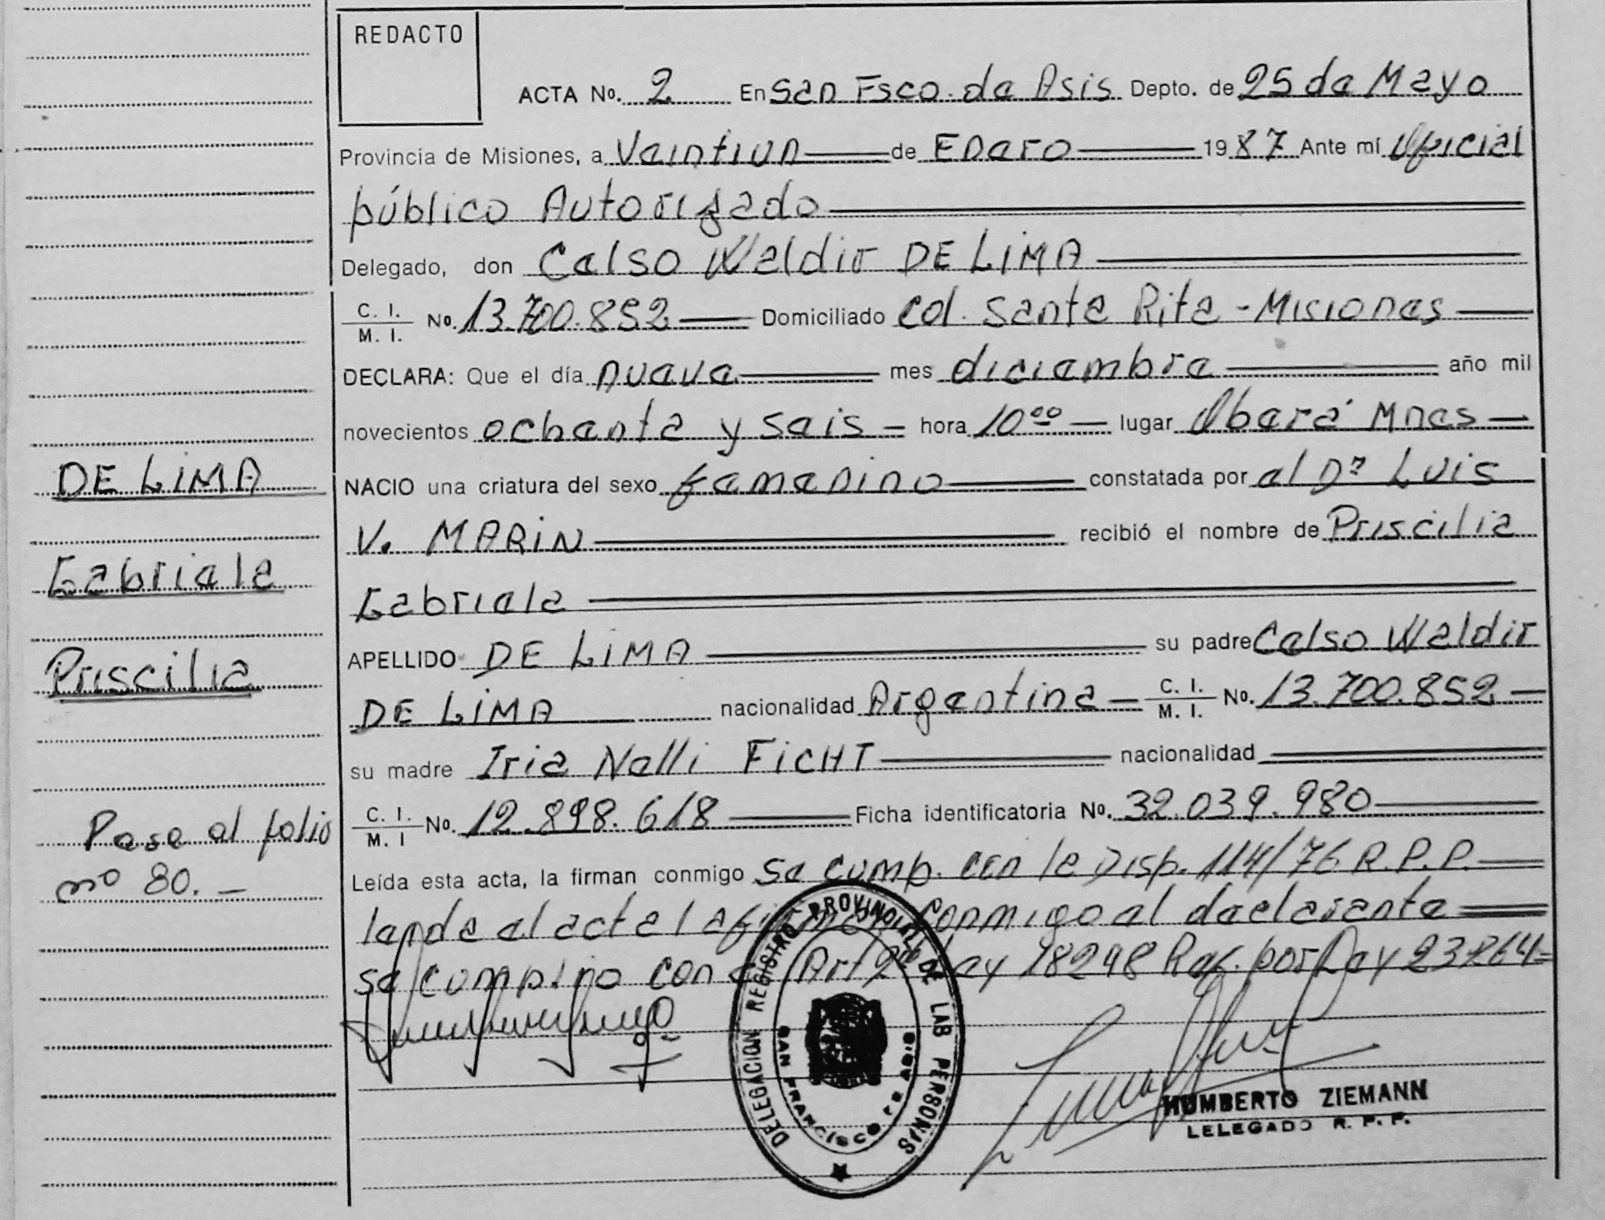 REDACTO
ACTA No. 2 En San Fsco. de Asis Depto. de 25 de Mayo
Provincia de Misiones, a Veintiun de Enero 1987 Ante mí Oficial
público Autorizado
Delegado, don Celso Waldir DE LiMA
C. I. M. I. No. 13.700.852 Domiciliado Col. Santa Rita - Misiones
DECLARA: Que el día nueve mes diciembre año mil
novecientos ochenta y seis = hora 10⁰⁰ — lugar Oberá Mnes —
NACIO una criatura del sexo femenino constatada por el Dr Luis
V. MARiN recibió el nombre de Priscilia
Gabriela
APELLIDO DE LiMA su padre Celso Waldir
DE LiMA nacionalidad Argentina — C. I. M. I. No. 13.700.852 —
su madre Iria Nelli FiCHT nacionalidad
C. I. M. I No. 12.898.618 Ficha identificatoria No. 32.039.980
Leída esta acta, la firman conmigo Se cump. con la Disp. 114/76 R.P.P.
conmigo el declarante
se con Art 2do Ley 18248 Ref. por Ley 23264=
DE LiMA
Gabriela
Priscilia
Pase al folio
nº 80. —
DELEGACION REGISTRO PROVINCIAL DE LAS PERSONAS
SAN FRANCISCO DE ASIS
HUMBERTO ZIEMANN
LELEGADO R. P. P.